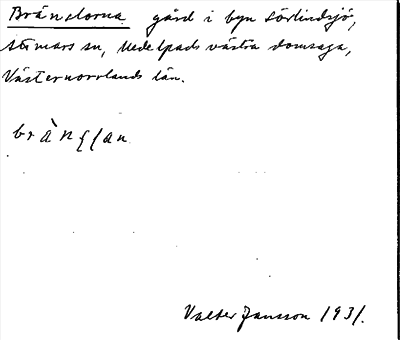 Bränslorna gård i byn Sörlindsjö,
Stöde sn, Medelpads västra domsaga,
Västernorrlands län.
Valter Jansson 1931.